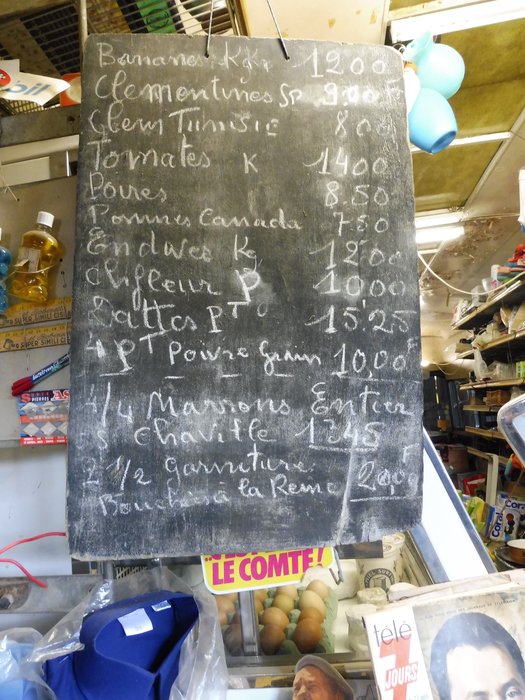 Bananes K 1200
Clementines Sp 9.00
Clem Tunisie 8.00
Tomates K 1400
Poires 8.50
Pommes Canada 7.50
Endives K 12.00
Chifleur P 10.00
Dattes PT 15.25
4 PT Poivre Grain 10,00F
4/4 Marrons Entier
Chaville 1345
2 1/2 garniture
Bouchées à la Reine 2.00F
LE COMTÉ!
télé
7
JOURS
SUPER SIMILI